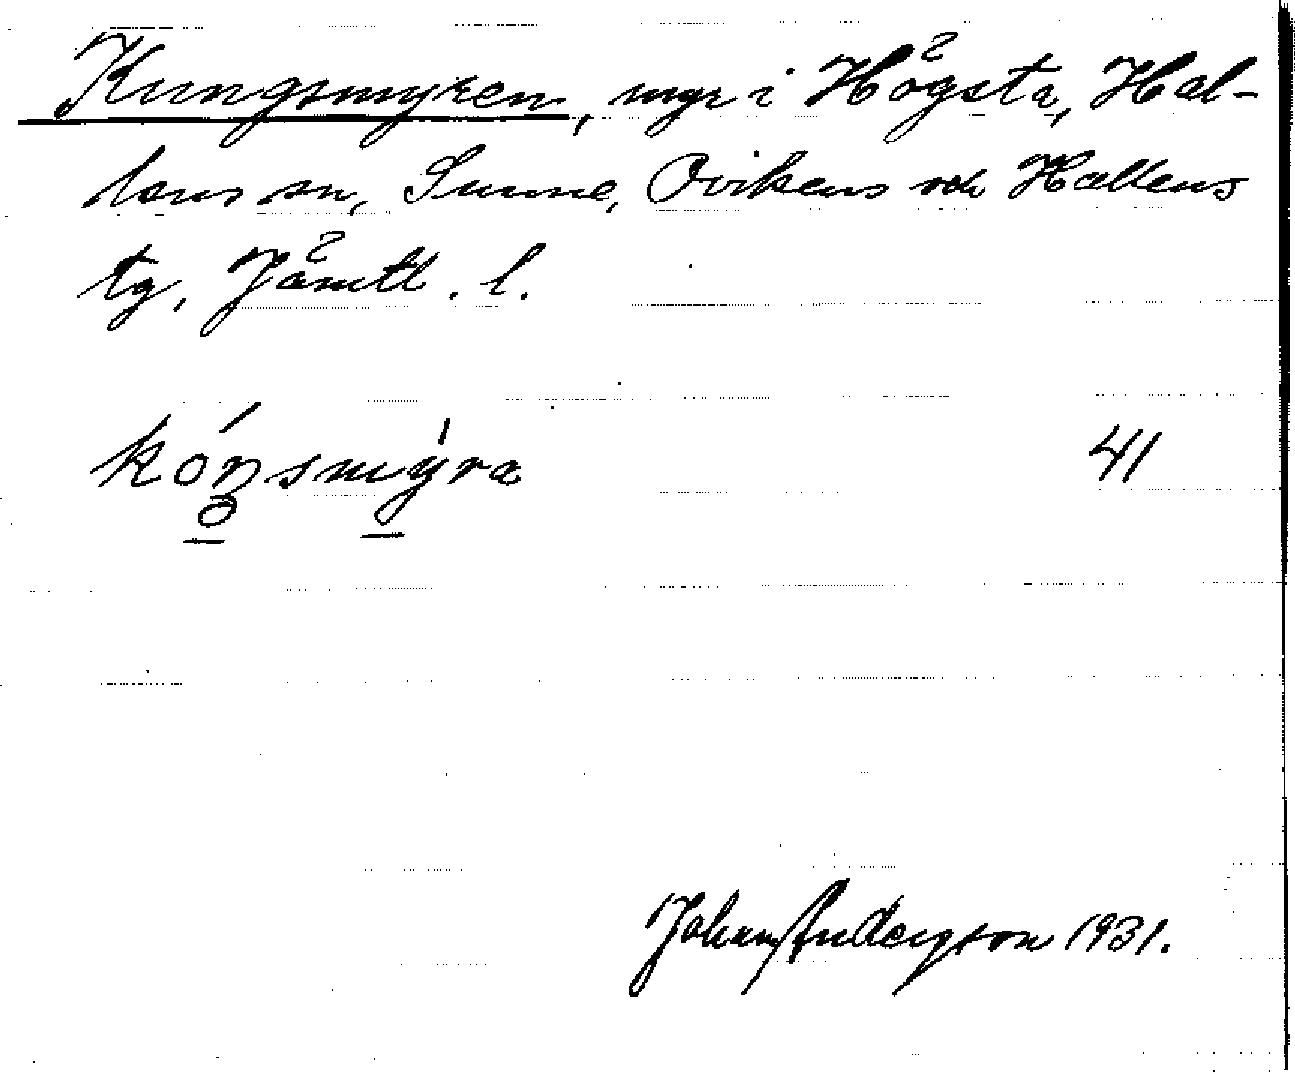 Kungsmyren, myr i Högsta, Hal-
lens sn, Sunne, Ovikens och Hallens
tg, Jämtl. l.
kóŋsmýra 41
Johan Anderzson 1931.